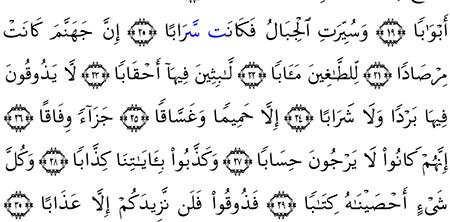 أَبْوَٰبًا ﴿١٩﴾ وَسُيِّرَتِ ٱلْجِبَالُ فَكَانَت سَّرَابًا ﴿٢٠﴾ إِنَّ جَهَنَّمَ كَانَتْ
مِرْصَادًا ﴿٢١﴾ لِّلطَّٰغِينَ مَـَٔابًا ﴿٢٢﴾ لَّٰبِثِينَ فِيهَآ أَحْقَابًا ﴿٢٣﴾ لَّا يَذُوقُونَ
فِيهَا بَرْدًا وَلَا شَرَابًا ﴿٢٤﴾ إِلَّا حَمِيمًا وَغَسَّاقًا ﴿٢٥﴾ جَزَآءً وِفَاقًا ﴿٢٦﴾
إِنَّهُمْ كَانُوا۟ لَا يَرْجُونَ حِسَابًا ﴿٢٧﴾ وَكَذَّبُوا۟ بِـَٔايَٰتِنَا كِذَّابًا ﴿٢٨﴾ وَكُلَّ
شَىْءٍ أَحْصَيْنَٰهُ كِتَٰبًا ﴿٢٩﴾ فَذُوقُوا۟ فَلَن نَّزِيدَكُمْ إِلَّا عَذَابًا ﴿٣٠﴾